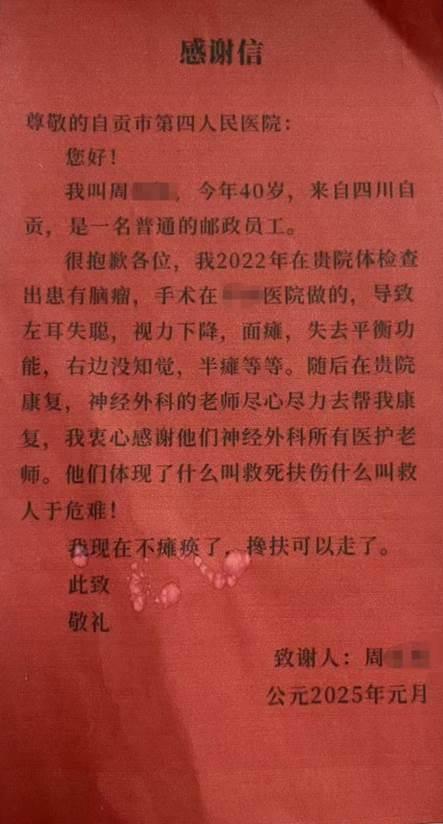 感谢信
尊敬的自贡市第四人民医院：
您好！
我叫周，今年40岁，来自四川自
贡，是一名普通的邮政员工。
很抱歉各位，我2022年在贵院体检查
出患有脑瘤，手术在医院做的，导致
左耳失聪，视力下降，面瘫，失去平衡功
能，右边没知觉，半瘫等等。随后在贵院
康复，神经外科的老师尽心尽力去帮我康
复，我衷心感谢他们神经外科所有医护老
师。他们体现了什么叫救死扶伤什么叫救
人于危难！
我现在不瘫痪了，搀扶可以走了。
此致
敬礼
致谢人：周
公元2025年元月